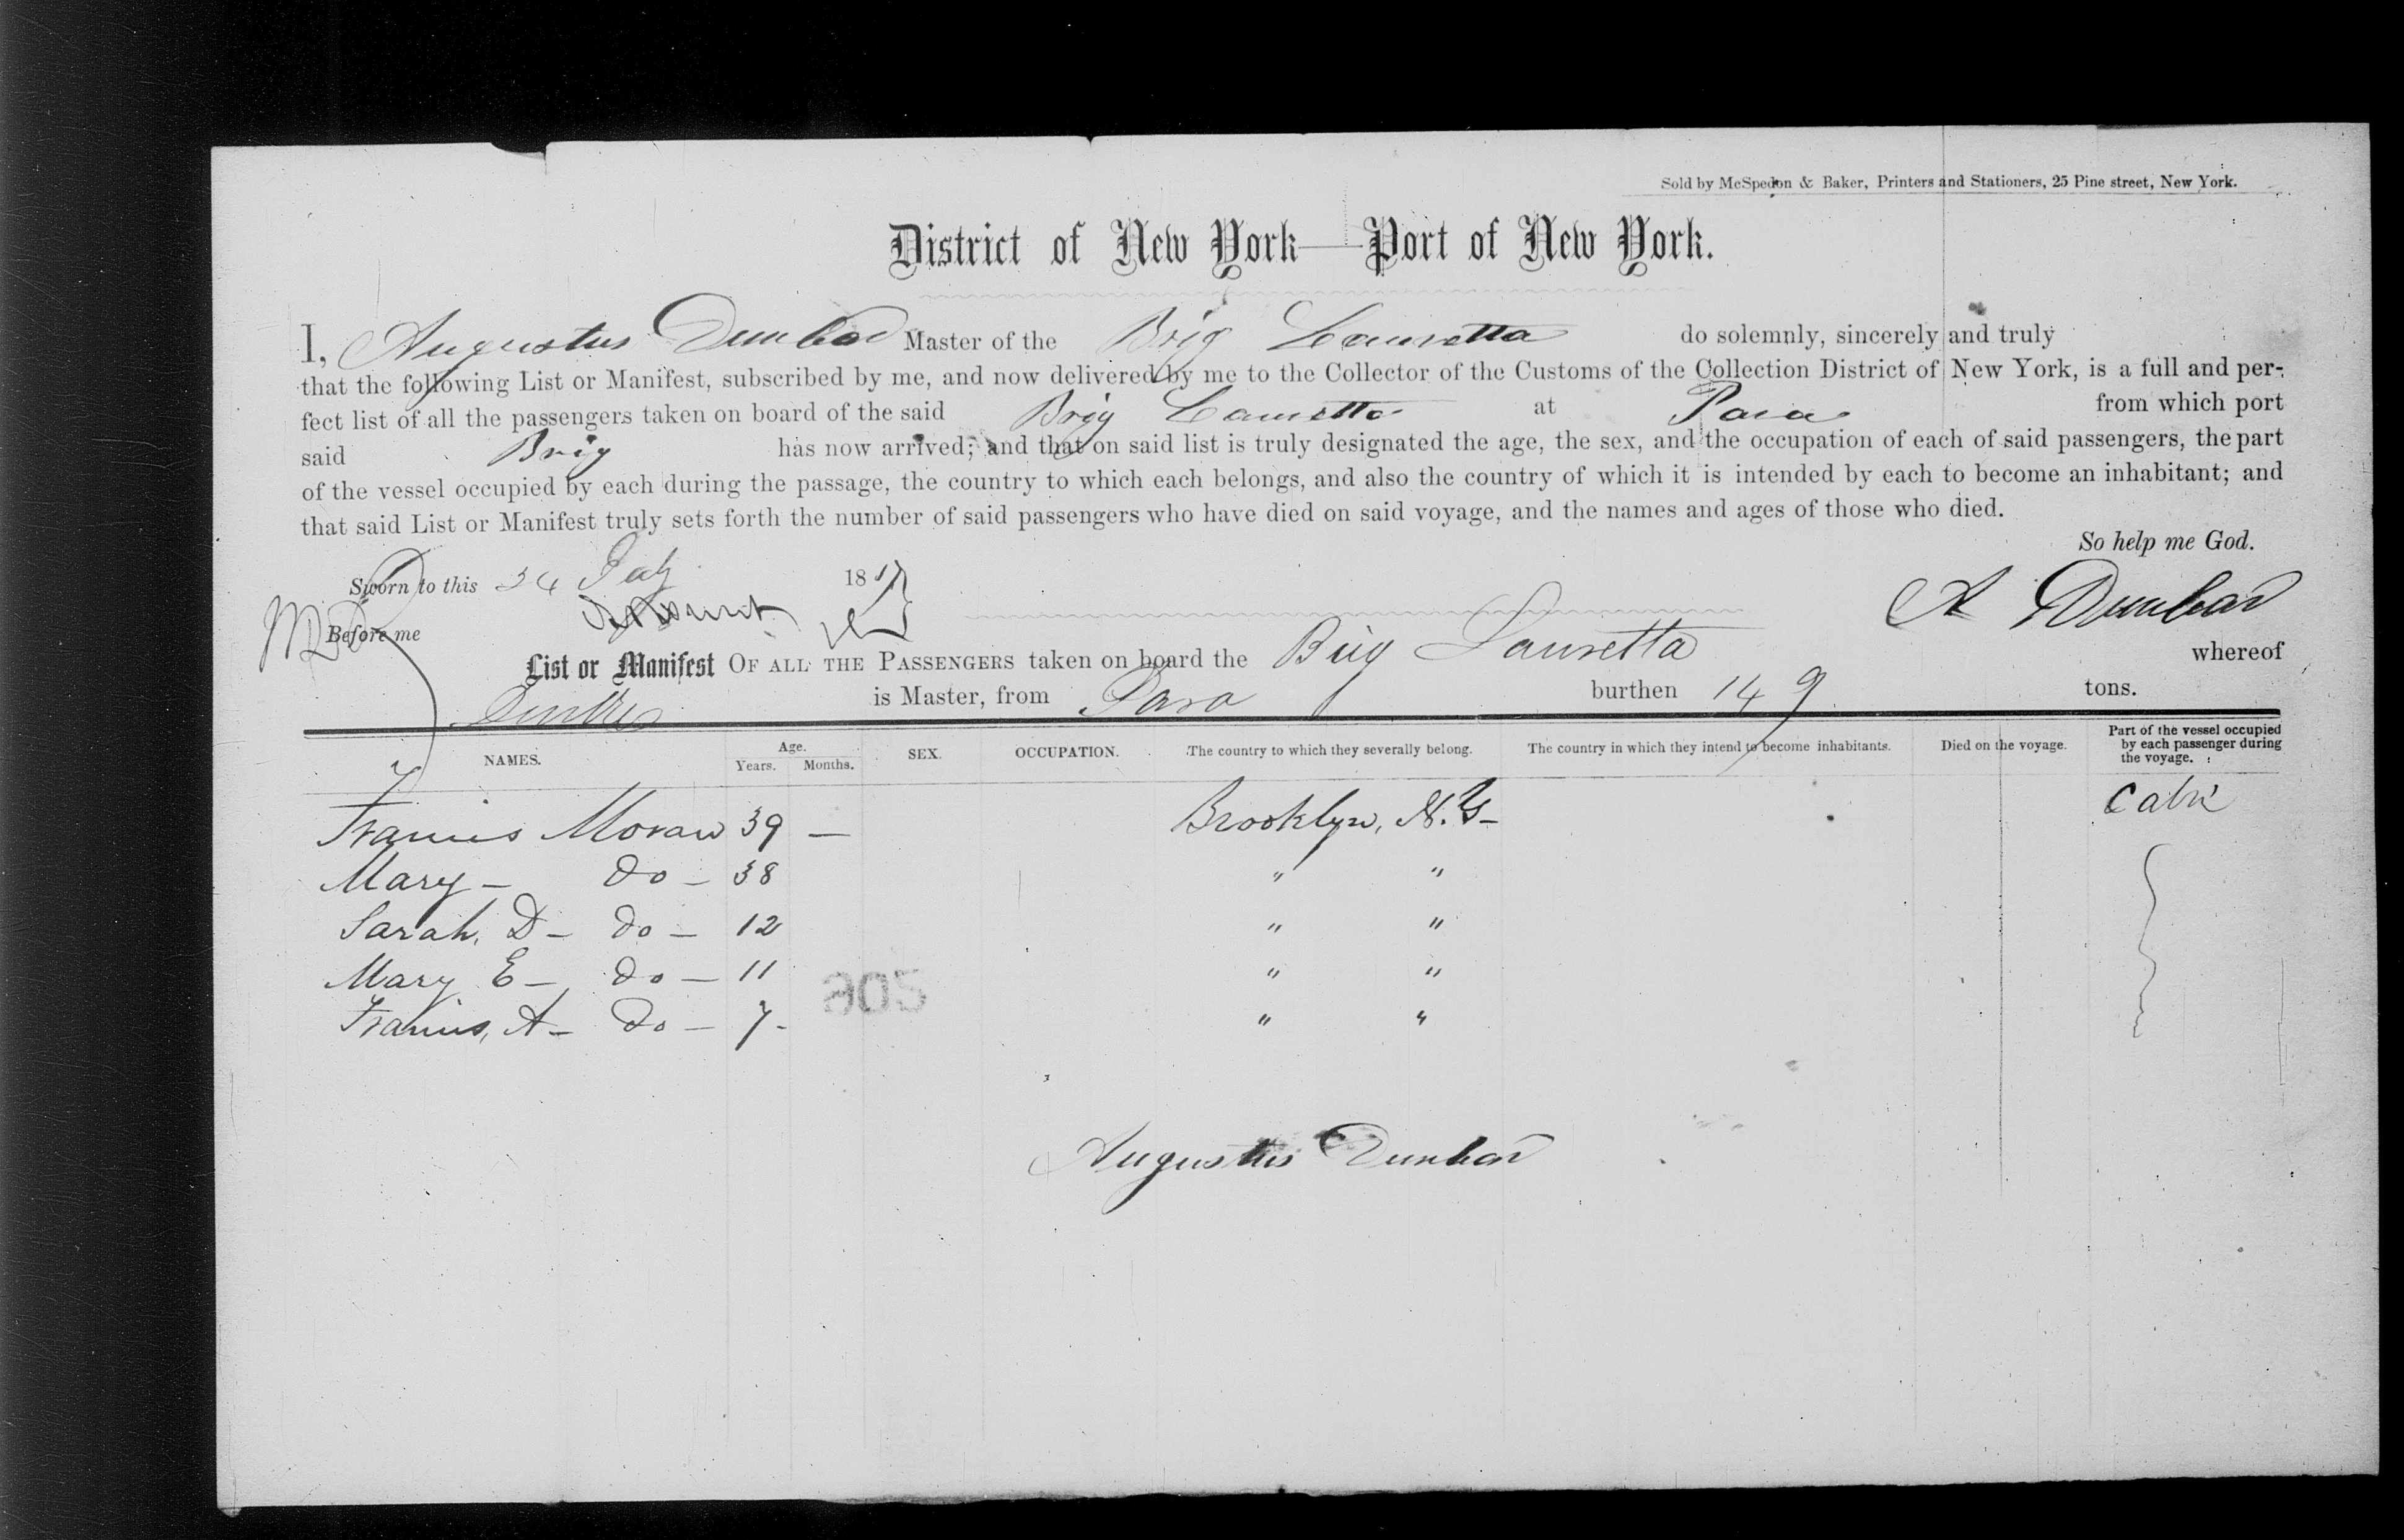 Sold by McSpedon & Baker, Printers and Stationers, 25 Pine street, New York.
District of New York—Port of New York.
I, Augustus Dunbar Master of the Brig Lauretta do solemnly, sincerely and truly
that the following List or Manifest, subscribed by me, and now delivered by me to the Collector of the Customs of the Collection District of New York, is a full and per-
fect list of all the passengers taken on board of the said Brig Lauretta at Para from which port
said Brig has now arrived; and that on said list is truly designated the age, the sex, and the occupation of each of said passengers, the part
of the vessel occupied by each during the passage, the country to which each belongs, and also the country of which it is intended by each to become an inhabitant; and
that said List or Manifest truly sets forth the number of said passengers who have died on said voyage, and the names and ages of those who died.
So help me God.
Sworn to this 24 July 1857
A Dunbar
Before me
List or Manifest OF ALL THE PASSENGERS taken on board the Brig Lauretta whereof
Dunbar is Master, from Para burthen 149 tons.
NAMES. Age. Years. Months. SEX. OCCUPATION. The country to which they severally belong. The country in which they intend to become inhabitants. Died on the voyage. Part of the vessel occupied by each passenger during the voyage.
Francis Moran 39 — Brooklyn, N.Y— Cabin
Mary — do — 38 " "
Sarah, D — do — 12 " "
Mary E — do — 11 " "
Francis, A — do — 7 - " "
Augustus Dunbar